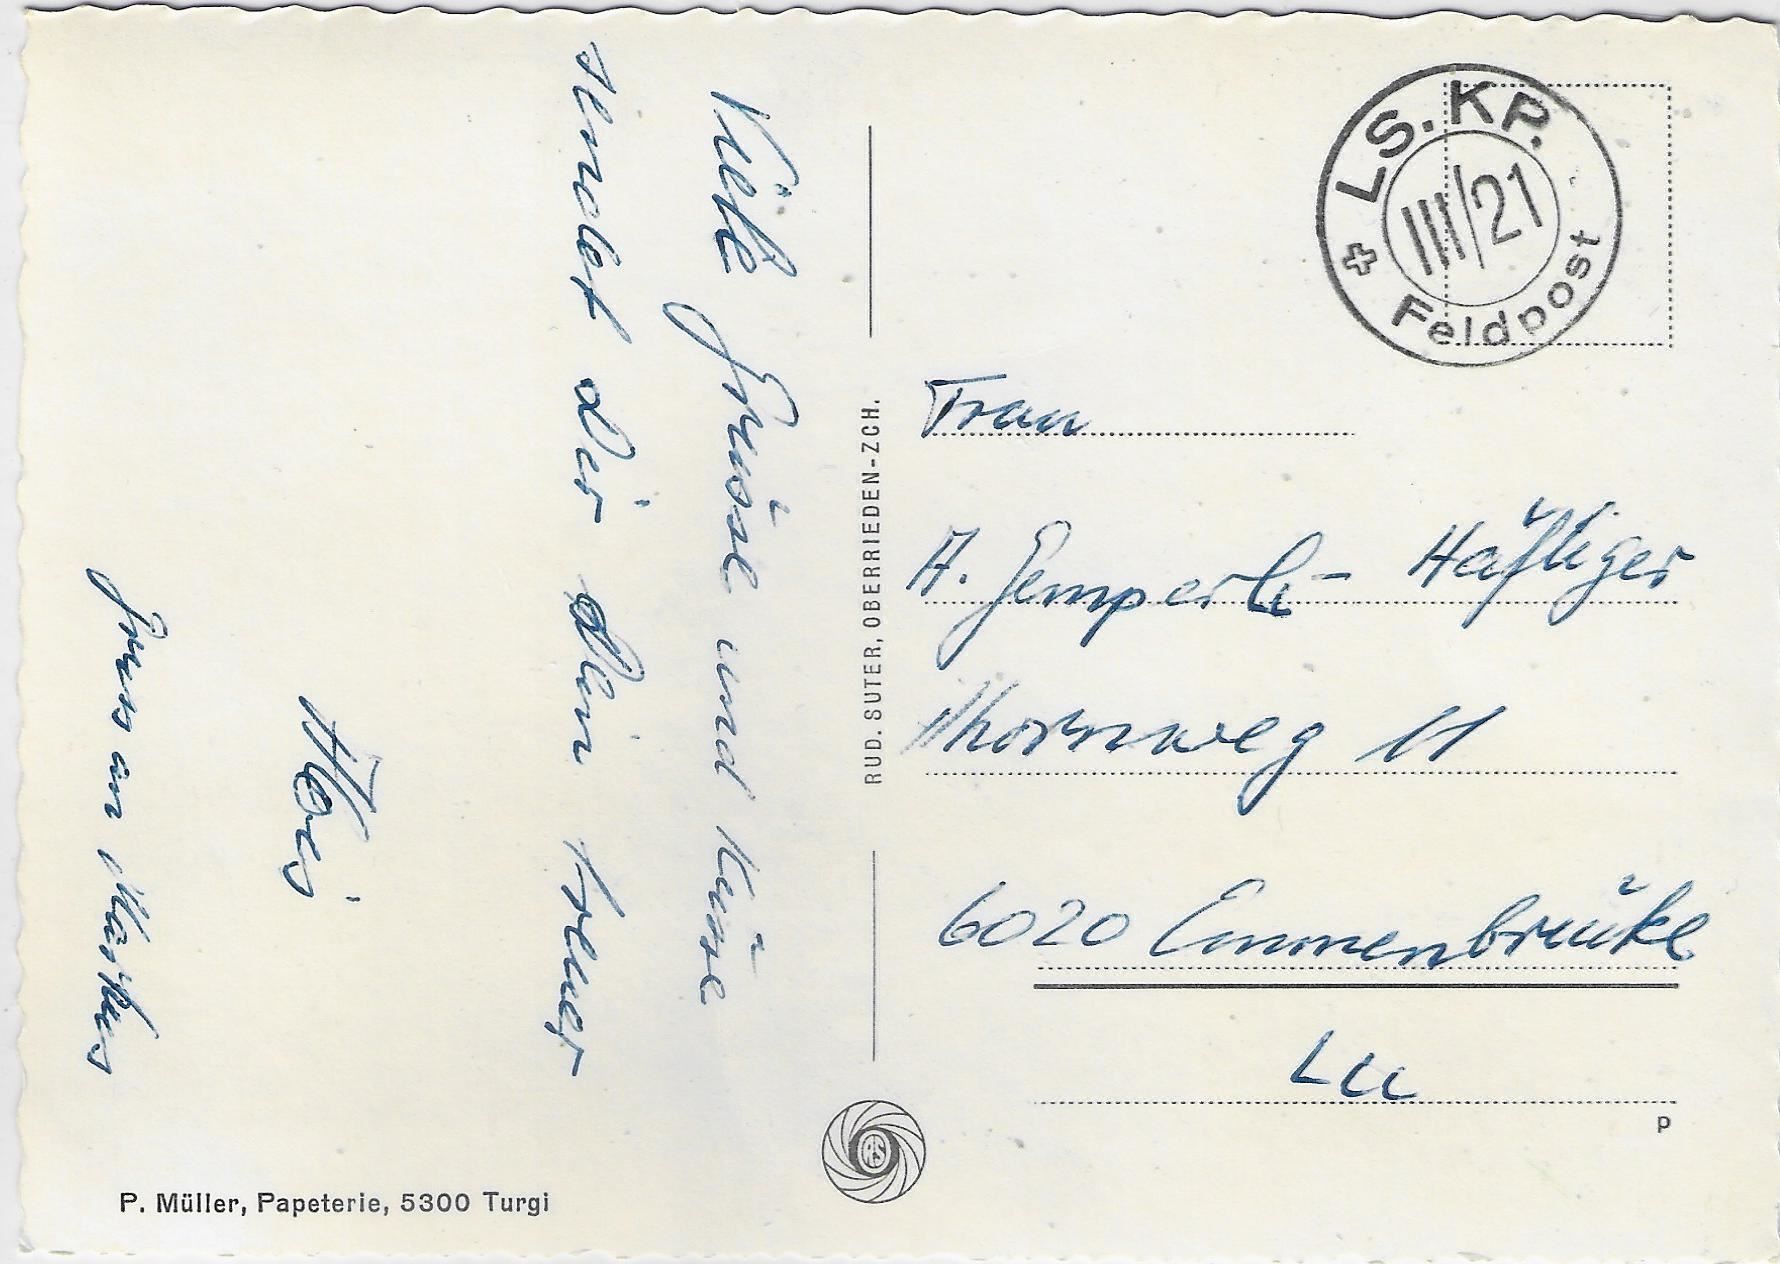 Viele Grüsse und Küsse
sendet dir dein treuer
Alois
Gruss an Markus
P. Müller, Papeterie, 5300 Turgi
RUD. SUTER, OBERRIEDEN-ZCH.
LS. KP.
III/21
Feldpost
Frau
A. Gemperli- Häfliger
Thornweg 11
6020 Emmenbrücke
LU
P